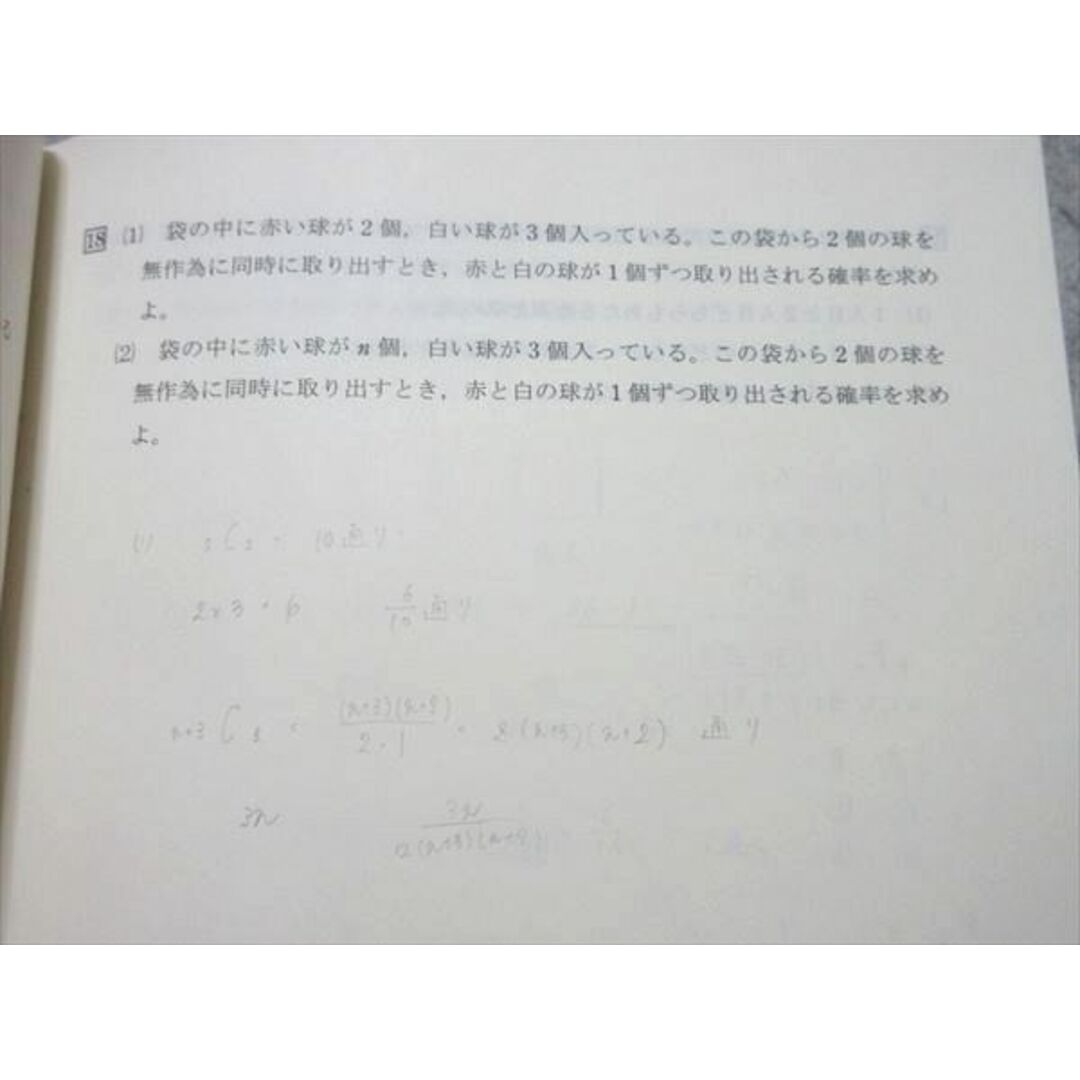 18 (1) 袋の中に赤い球が2個,白い球が3個入っている。この袋から2個の球を
無作為に同時に取り出すとき,赤と白の球が1個ずつ取り出される確率を求め
よ。
(2) 袋の中に赤い球がn個,白い球が3個入っている。この袋から2個の球を
無作為に同時に取り出すとき,赤と白の球が1個ずつ取り出される確率を求め
よ。
(1) C 10通り
2×3=6 6/10通り
n+3 C = (n+3)(n+2)/2・1 = (n+3)(n+2) 通り
3n 3n/(n+3)(n+2)